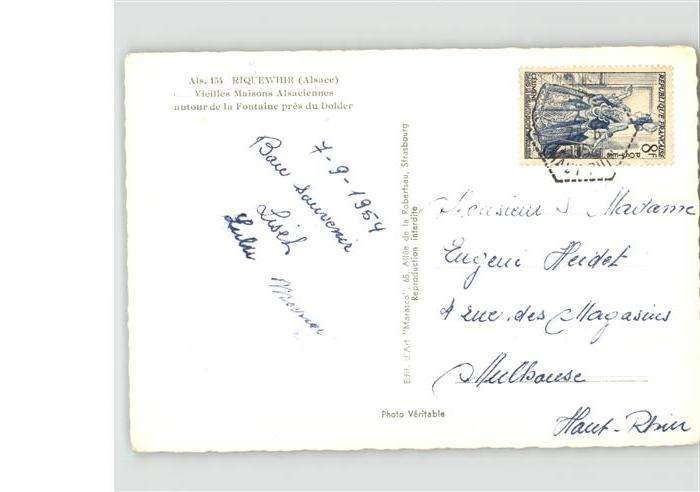 Als. 154 RIQUEWIHR (Alsace)
Vieilles Maisons Alsaciennes
autour de la Fontaine près du Dolder
7-9-1954
Bon souvenir
Liset
Lulu
Edit. d'Art "Marasco", 65, Allée de la Robertsau, Strasbourg
Reproduction interdite
Photo Véritable
REPUBLIQUE FRANÇAISE
8F
POSTES
Monsieur & Madame
Eugène Heidet
rue des Magasins
Mulhouse
Haut-Rhin